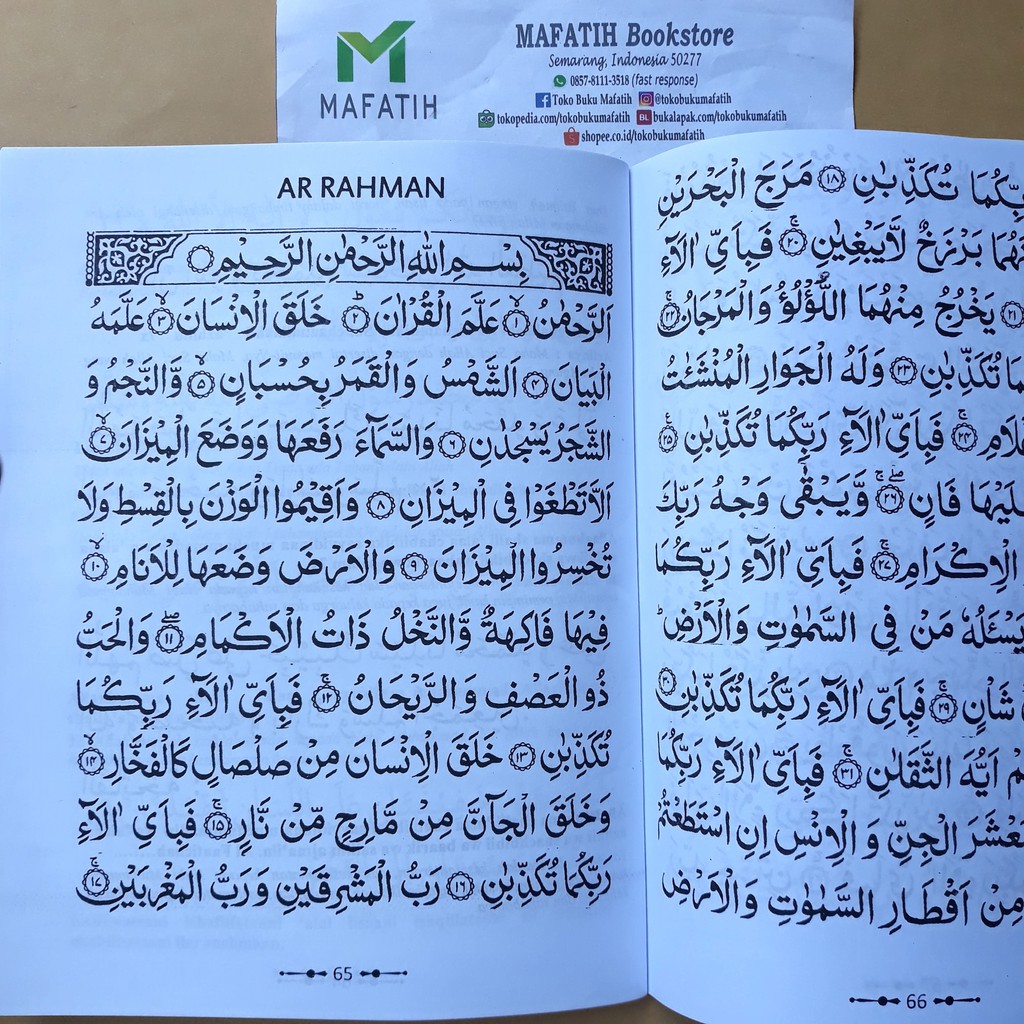 MAFATIH
MAFATIH Bookstore
Semarang, Indonesia 50277
0857-8111-3518 (fast response)
Toko Buku Mafatih @tokobukumafatih
tokopedia.com/tokobukumafatih BL bukalapak.com/tokobukumafatih
shopee.co.id/tokobukumafatih
AR RAHMAN
بِسْمِ اللهِ الرَّحْمٰنِ الرَّحِيْمِ
اَلرَّحْمٰنُ ۙ ١ عَلَّمَ الْقُرْاٰنَ ۗ ٢ خَلَقَ الْاِنْسَانَ ۙ ٣ عَلَّمَهُ
الْبَيَانَ ٤ اَلشَّمْسُ وَالْقَمَرُ بِحُسْبَانٍ ۙ ٥ وَّالنَّجْمُ وَ
الشَّجَرُ يَسْجُدٰنِ ٦ وَالسَّمَآءَ رَفَعَهَا وَوَضَعَ الْمِيْزَانَ ۙ ٧
اَلَّا تَطْغَوْا فِى الْمِيْزَانِ ٨ وَاَقِيْمُوا الْوَزْنَ بِالْقِسْطِ وَلَا
تُخْسِرُوا الْمِيْزَانَ ٩ وَالْاَرْضَ وَضَعَهَا لِلْاَنَامِ ۙ ١٠
فِيْهَا فَاكِهَةٌ وَّالنَّخْلُ ذَاتُ الْاَكْمَامِ ۖ ١١ وَالْحَبُّ
ذُو الْعَصْفِ وَالرَّيْحَانُ ۚ ١٢ فَبِاَيِّ اٰلَآءِ رَبِّكُمَا
تُكَذِّبٰنِ ١٣ خَلَقَ الْاِنْسَانَ مِنْ صَلْصَالٍ كَالْفَخَّارِ ۙ ١٤
وَخَلَقَ الْجَآنَّ مِنْ مَّارِجٍ مِّنْ نَّارٍ ۚ ١٥ فَبِاَيِّ اٰلَآءِ
رَبِّكُمَا تُكَذِّبٰنِ ١٦ رَبُّ الْمَشْرِقَيْنِ وَرَبُّ الْمَغْرِبَيْنِ ۚ ١٧
65
تُكَذِّبٰنِ ١٨ مَرَجَ الْبَحْرَيْنِ
بَرْزَخٌ لَّا يَبْغِيٰنِ ۚ ٢٠ فَبِاَيِّ اٰلَآءِ
٢١ يَخْرُجُ مِنْهُمَا اللُّؤْلُؤُ وَالْمَرْجَانُ ۚ ٢٢
تُكَذِّبٰنِ ٢٣ وَلَهُ الْجَوَارِ الْمُنْشَئٰتُ
٢٤ فَبِاَيِّ اٰلَآءِ رَبِّكُمَا تُكَذِّبٰنِ ۚ ٢٥
فَانٍ ۖ ٢٦ وَّيَبْقٰى وَجْهُ رَبِّكَ
الْاِكْرَامِ ۚ ٢٧ فَبِاَيِّ اٰلَآءِ رَبِّكُمَا
يَسْـَٔلُهٗ مَنْ فِى السَّمٰوٰتِ وَالْاَرْضِ ۗ
شَأْنٍ ۚ ٢٩ فَبِاَيِّ اٰلَآءِ رَبِّكُمَا تُكَذِّبٰنِ ٣٠
اَيُّهَ الثَّقَلٰنِ ۚ ٣١ فَبِاَيِّ اٰلَآءِ رَبِّكُمَا
الْجِنِّ وَالْاِنْسِ اِنِ اسْتَطَعْتُمْ
مِنْ اَقْطَارِ السَّمٰوٰتِ وَالْاَرْضِ
66